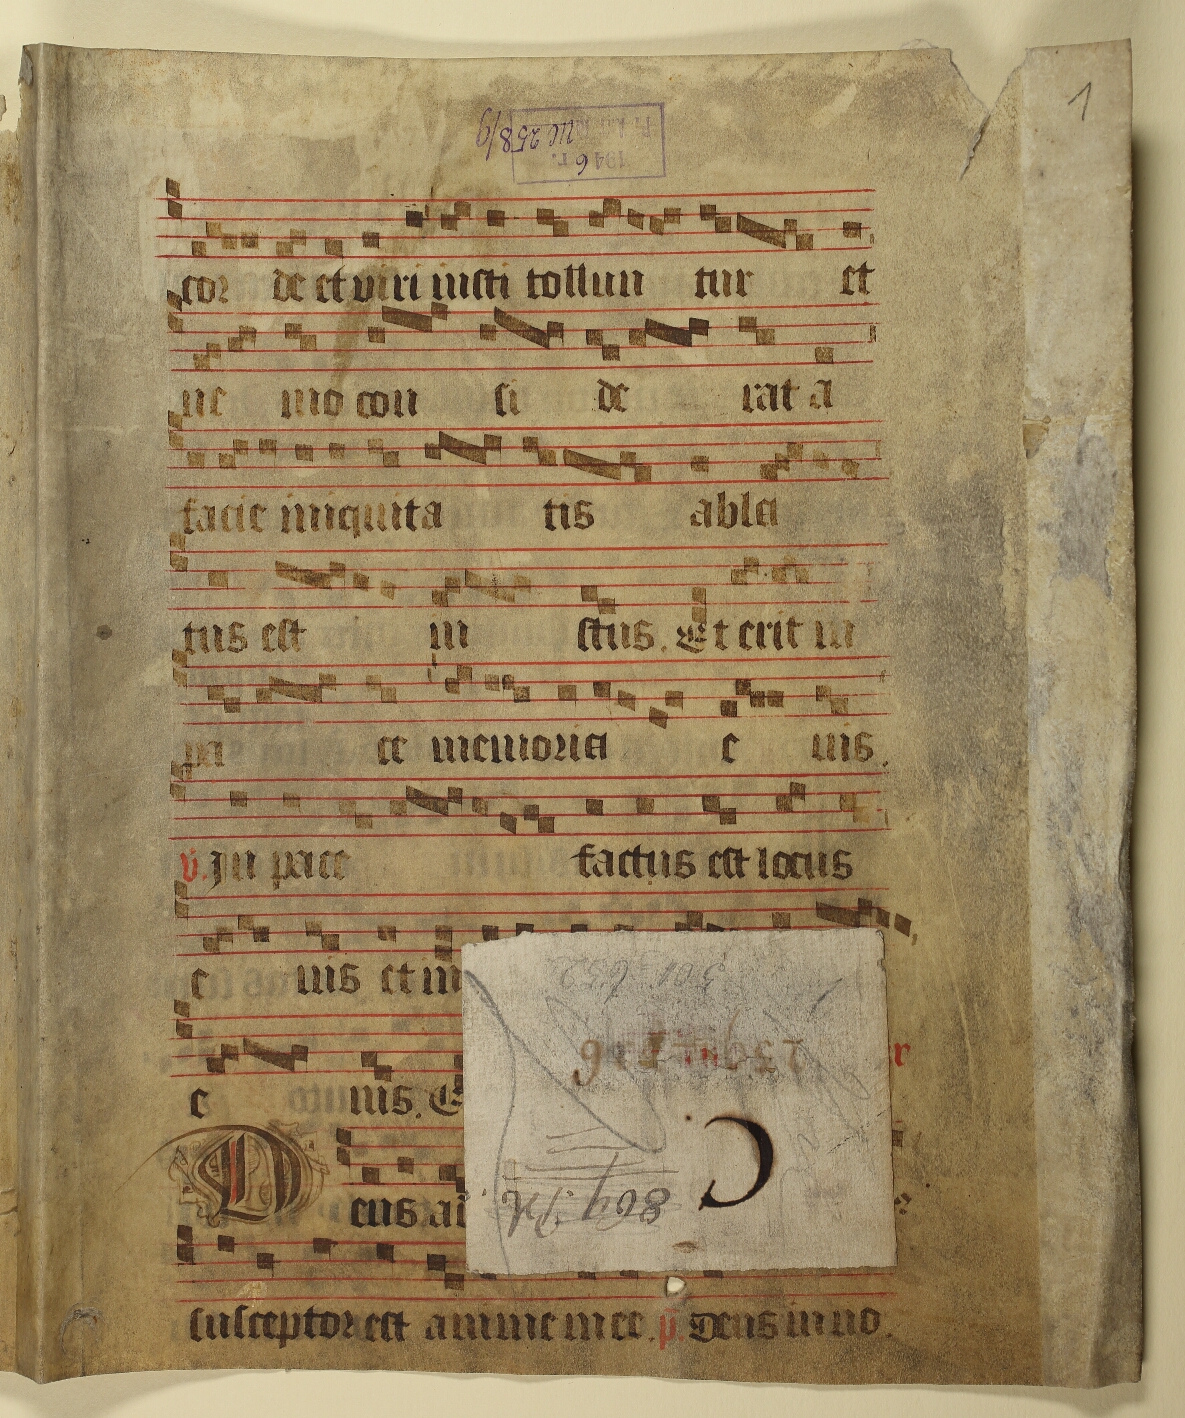 1
1946 r.
cor de et viri iusti tollun tur et
ne mo con si de rat a
facie iniquita tis abla
tus est iu stus. Et erit in
pa ce memoria e ius.
v. In pace factus est locus
e ius et in
e ius. E r
Deus ad
susceptor est anime mee. p. Deus in no.
869
C